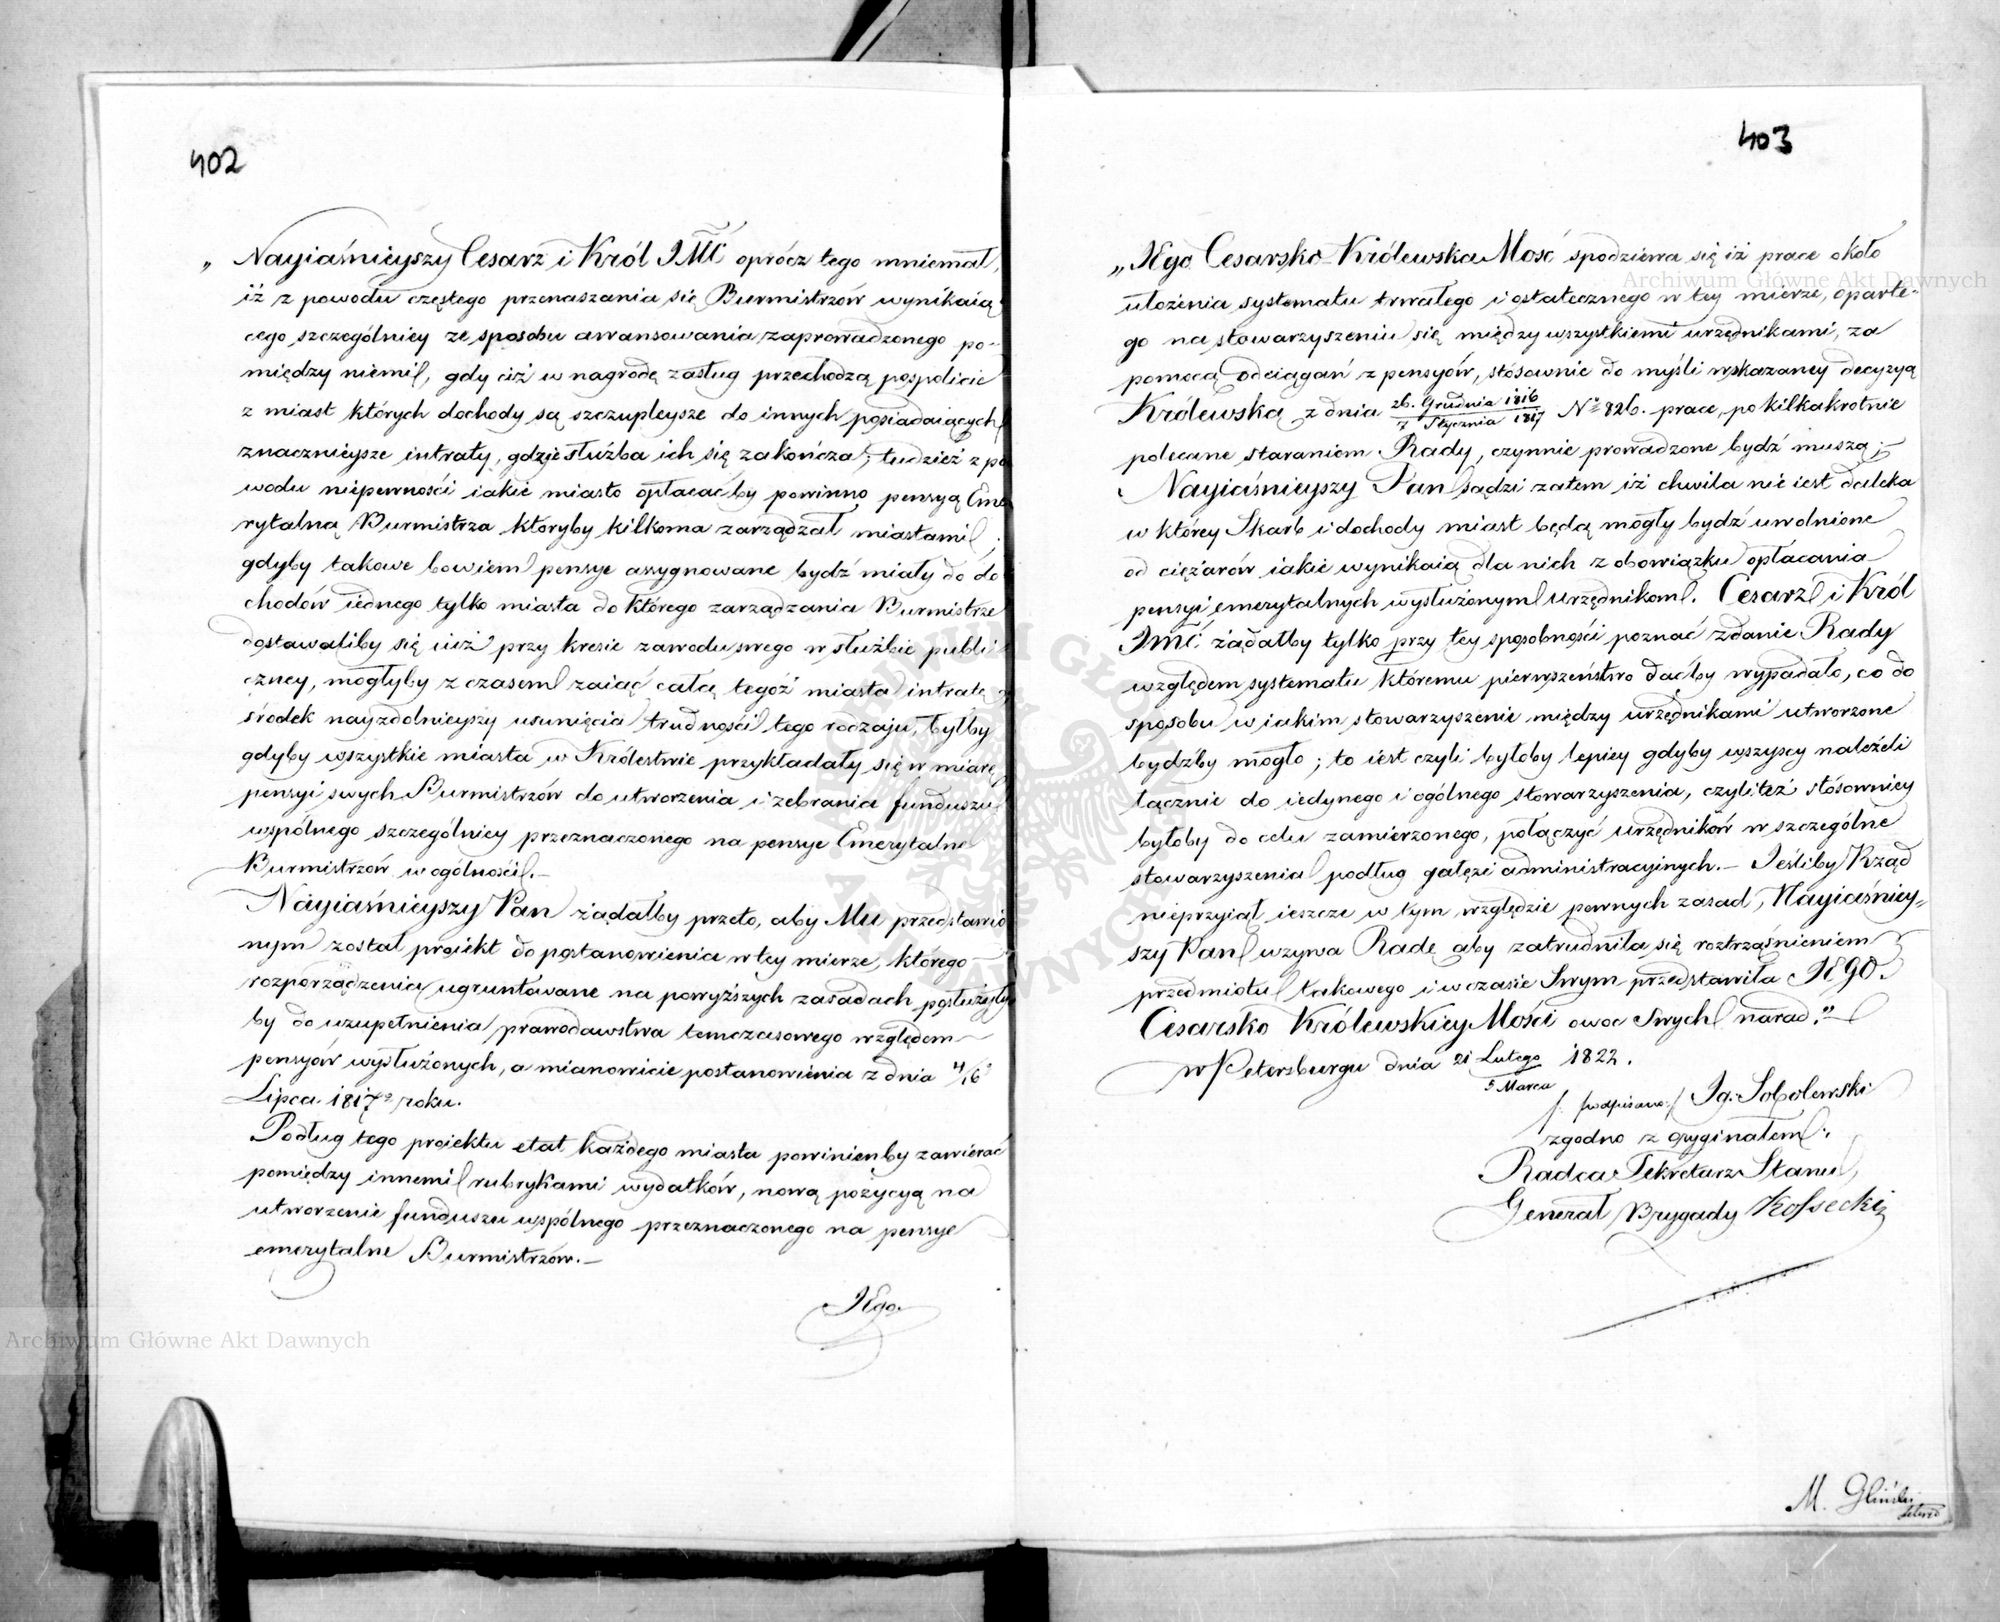 402
„ Nayiaśnieyszy Cesarz i Król JMć oprócz tego mniemał,
iż z powodu częstego przenaszania się Burmistrzów wynikaią
cego szczególniey ze sposobu awansowania zaprowadzonego po-
między niemi, gdy ciż w nagrodę zasług przechodzą pospolicie
z miast których dochody są szczupleysze do innych posiadaiących
znacznieysze intraty, gdzie służba ich się zakończa; tudzież z po
wodu niepewności iakie miasto opłacać by powinno pensyą Eme
rytalną Burmistrza któryby kilkoma zarządzał miastami;
gdyby takowe bowiem pensye assygnowane bydź miały do do
chodów iednego tylko miasta do którego zarządzania Burmistrze
dostawaliby się iuż przy kresie zawodu swego w służbie publi
czney, mogłyby z czasem zaiąć całą tegoż miasta intratę,
środek nayzdolnieyszy usunięcia trudności tego rodzaju, byłby
gdyby wszystkie miasta w Królestwie przykładały się w miarę
pensyi swych Burmistrzów do utworzenia i zebrania funduszu
wspólnego szczególniey przeznaczonego na pensye Emerytalne
Burmistrzów w ogólności.—
Nayiaśnieyszy Pan żądałby przeto, aby Mu przedstawio
nym został proiekt do postanowienia w tey mierze, którego
rozporządzenia ugruntowane na powyższych zasadach posłużyły
by do uzupełnienia prawodawstwa tymczasowego względem
pensyów wysłużonych, a mianowicie postanowienia z dnia 4/16
Lipca 1817go roku.
Podług tego proiektu etat każdego miasta powinienby zawierać
pomiędzy innemi rubrykami wydatków, nową pozycyą na
utworzenie funduszu wspólnego przeznaczonego na pensye
emerytalne Burmistrzów.—
JEgo
Archiwum Główne Akt Dawnych
403
„JEgo Cesarsko-Królewska Mość spodziewa się iż prace około
Archiwum Główne Akt Dawnych
ułożenia systematu trwałego i ostatecznego w tey mierze, oparte-
go na stowarzyszeniu się między wszystkiemi urzędnikami, za
pomocą odciągań z pensyów, stósownie do myśli wskazaney decyzyą
Królewską z dnia 26. Grudnia 1816 / 7 Stycznia 1817 No 826. prace, po kilkakrotnie
polecane staraniom Rady, czynnie prowadzone bydź muszą;—
Nayiaśnieyszy Pan sądzi zatem iż chwila nie iest daleka
w którey Skarb i dochody miast będą mogły bydź uwolnione
od ciężarów iakie wynikaią dla nich z obowiązku opłacania
pensyi emerytalnych wysłużonym urzędnikom. Cesarz i Król
Jmć żądałby tylko przy tey sposobności poznać zdanie Rady
względem systematu któremu pierwszeństwo dać by wypadało, co do
sposobu w iakim stowarzyszenie między urzędnikami utworzone
bydźby mogło; to iest czyli byłoby lepiey gdyby wszyscy należeli
łącznie do iedynego i ogólnego stowarzyszenia, czyli też stósowniey
byłoby do celu zamierzonego, połączyć urzędników w szczególne
stowarzyszenia podług gałęzi administracyinych.— Jeśliby Rząd
nieprzyiął ieszcze w tym względzie pewnych zasad, Nayiaśniey-
szy Pan wzywa Radę aby zatrudniła się roztrząśnieniem
przedmiotu takowego i w czasie Swym przedstawiła JEGO
Cesarsko Królewskiey Mości owoc Swych narad."
w Petersburgu dnia 21 Lutego / 5 Marca 1822.
/: podpisano :/ Ig. Sobolewski
zgodno z oryginałem:
Radca Sekretarz Stanu,
Generał Brygady Kossecki
M. Gliński